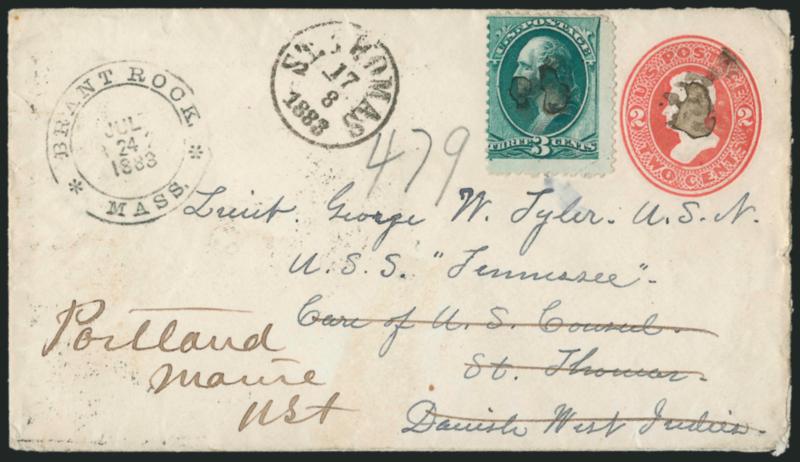 BRANT ROCK
JUL
24
1883
* MASS. *
ST. THOMAS
17
8
1883
U.S. POSTAGE
THREE 3 CENTS
U.S. POSTAGE
2 2
TWO CENTS
479
Lieut. George W. Tyler. U.S.N.
U.S.S. "Tennessee".
Care of U.S. Consul.
St. Thomas.
Danish West Indies.
Portland
Maine
USt